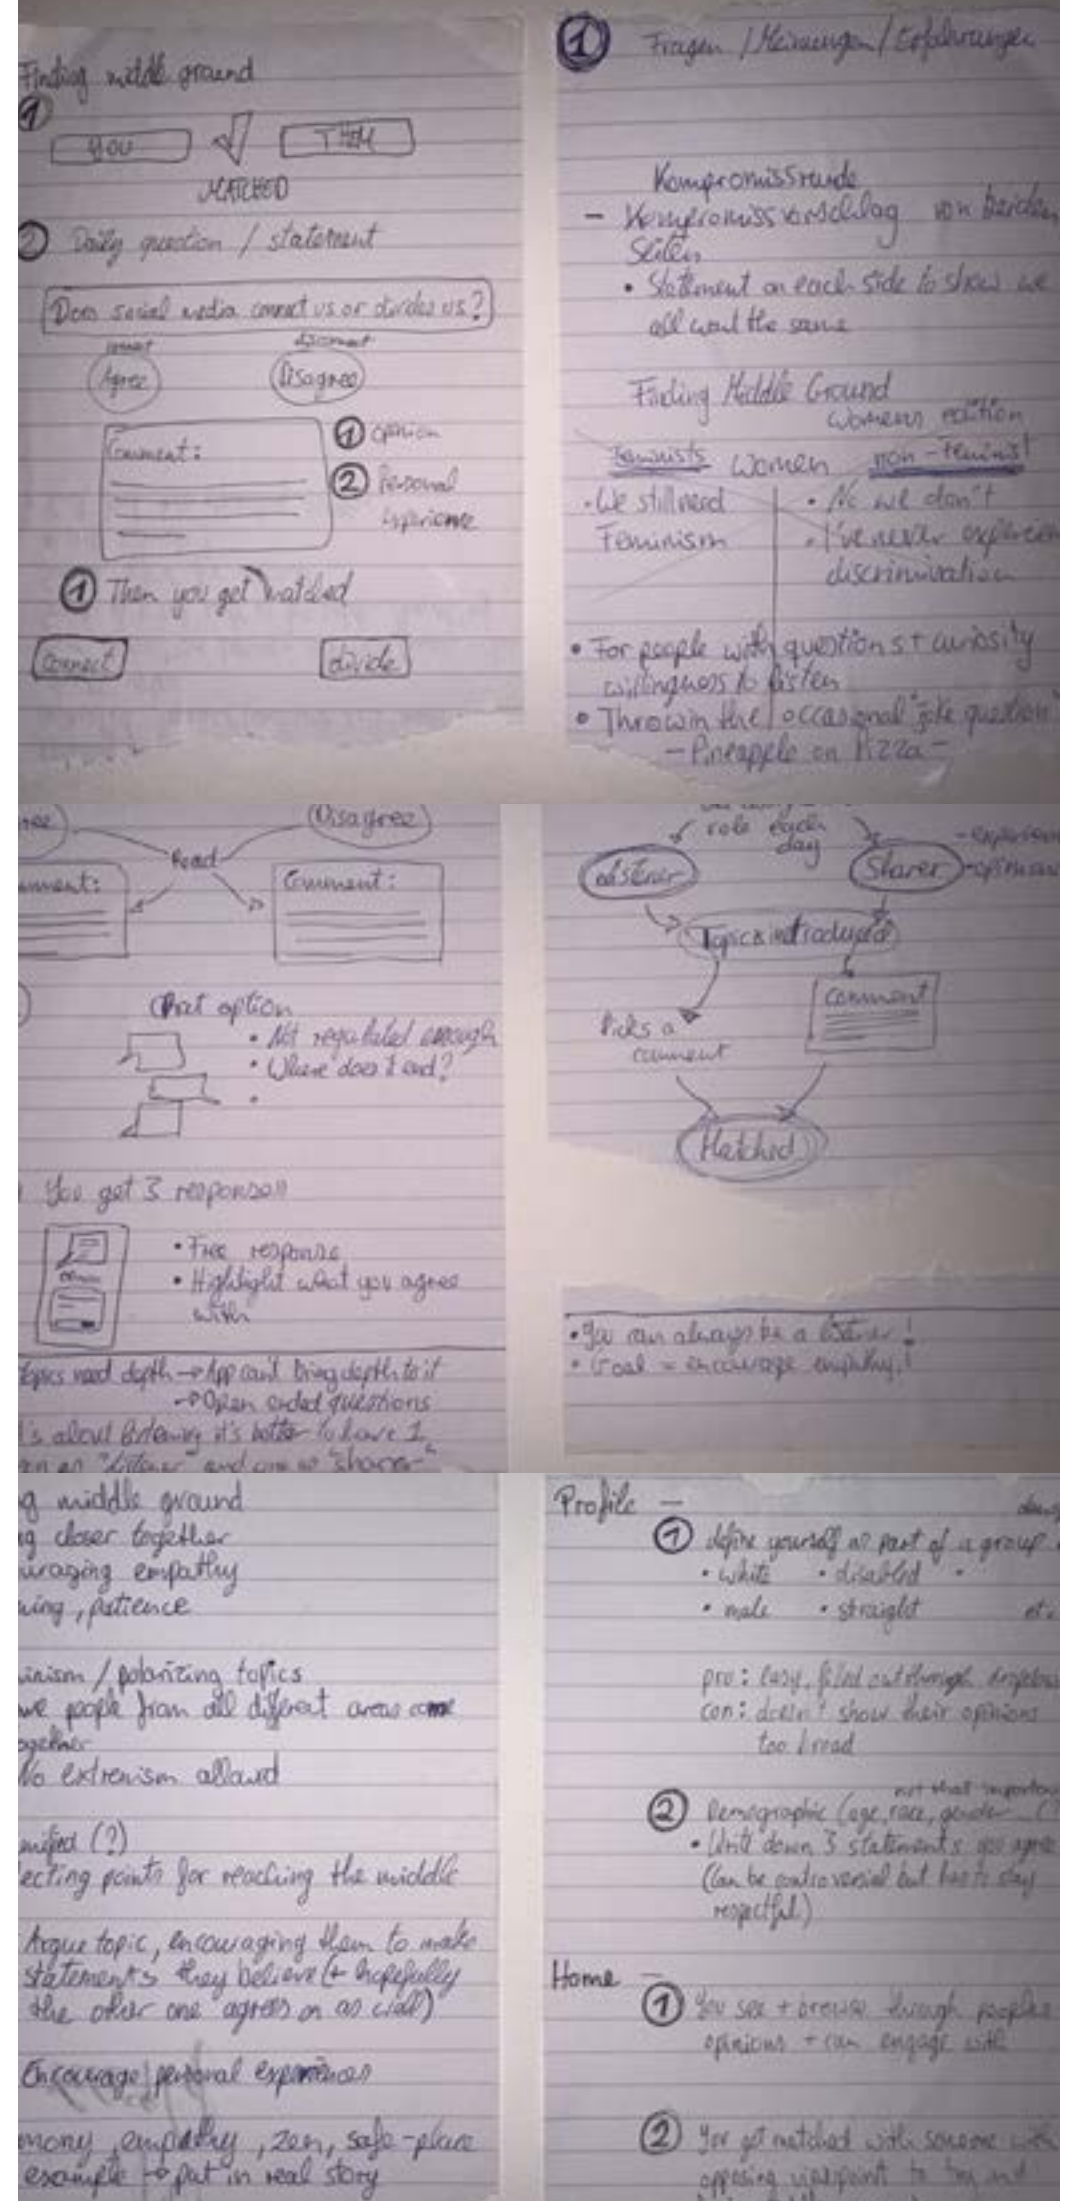 Finding middle ground
1
YOU
THEM
MATCHED
2 Daily question / statement
Does social media connect us or divides us?
connect
disconnect
Agree
Disagree
Comment:
1 opinion
2 Personal
experience
1 Then you get matched
connect
divide
1 Fragen / Meinungen / Erfahrungen
Kompromissrunde
- Kompromissvorschlag von beiden
Seiten
• Statement on each side to show we
all want the same
Finding Middle Ground
Womens edition
Feminists Women non-Feminist
• We still need
Feminism
• No we don't
• I've never experien
discrimination
• For people with questions + curiosity
willingness to listen
• Throw in the occasional "joke question"
- Pineapple on Pizza -
ree
Disagree
Read
mment:
Comment:
Chat option
• Not regulated enough
• Where does it end?
•
You get 3 responses
• Free response
• Highlight what you agree
with
Topics need depth → App can't bring depth to it
→ Open ended questions
's about listening it's better to have 1
"listener" and one as "sharer"
role each
day
Listener
Sharer
- experien
- opinions
Topic is introduced
Picks a
comment
Comment
Matched
• You can always be a listener!
• Goal = encourage empathy!
g middle ground
ng closer together
uraging empathy
ning, patience
inism / polarizing topics
ve people from all different areas come
ogether
No extremism allowed
mified (?)
ecting points for reaching the middle
Argue topic, encouraging them to make
statements they believe (+ hopefully
the other one agrees on as well)
Encourage personal experiences
mony, empathy, zen, safe-place
example → put in real story
Profile -
1 define yourself as part of a group
• white • disabled •
• male • straight etc.
pro: easy, filled out through
con: doesn't show their opinions
too broad
not that important
2 Demographic (age, race, gender
• Write down 3 statements you agree
(Can be controversial but has to stay
respectful)
Home -
1 You see + browse through peoples
opinions + can engage with
2 You get matched with someone with
opposing viewpoint to try and